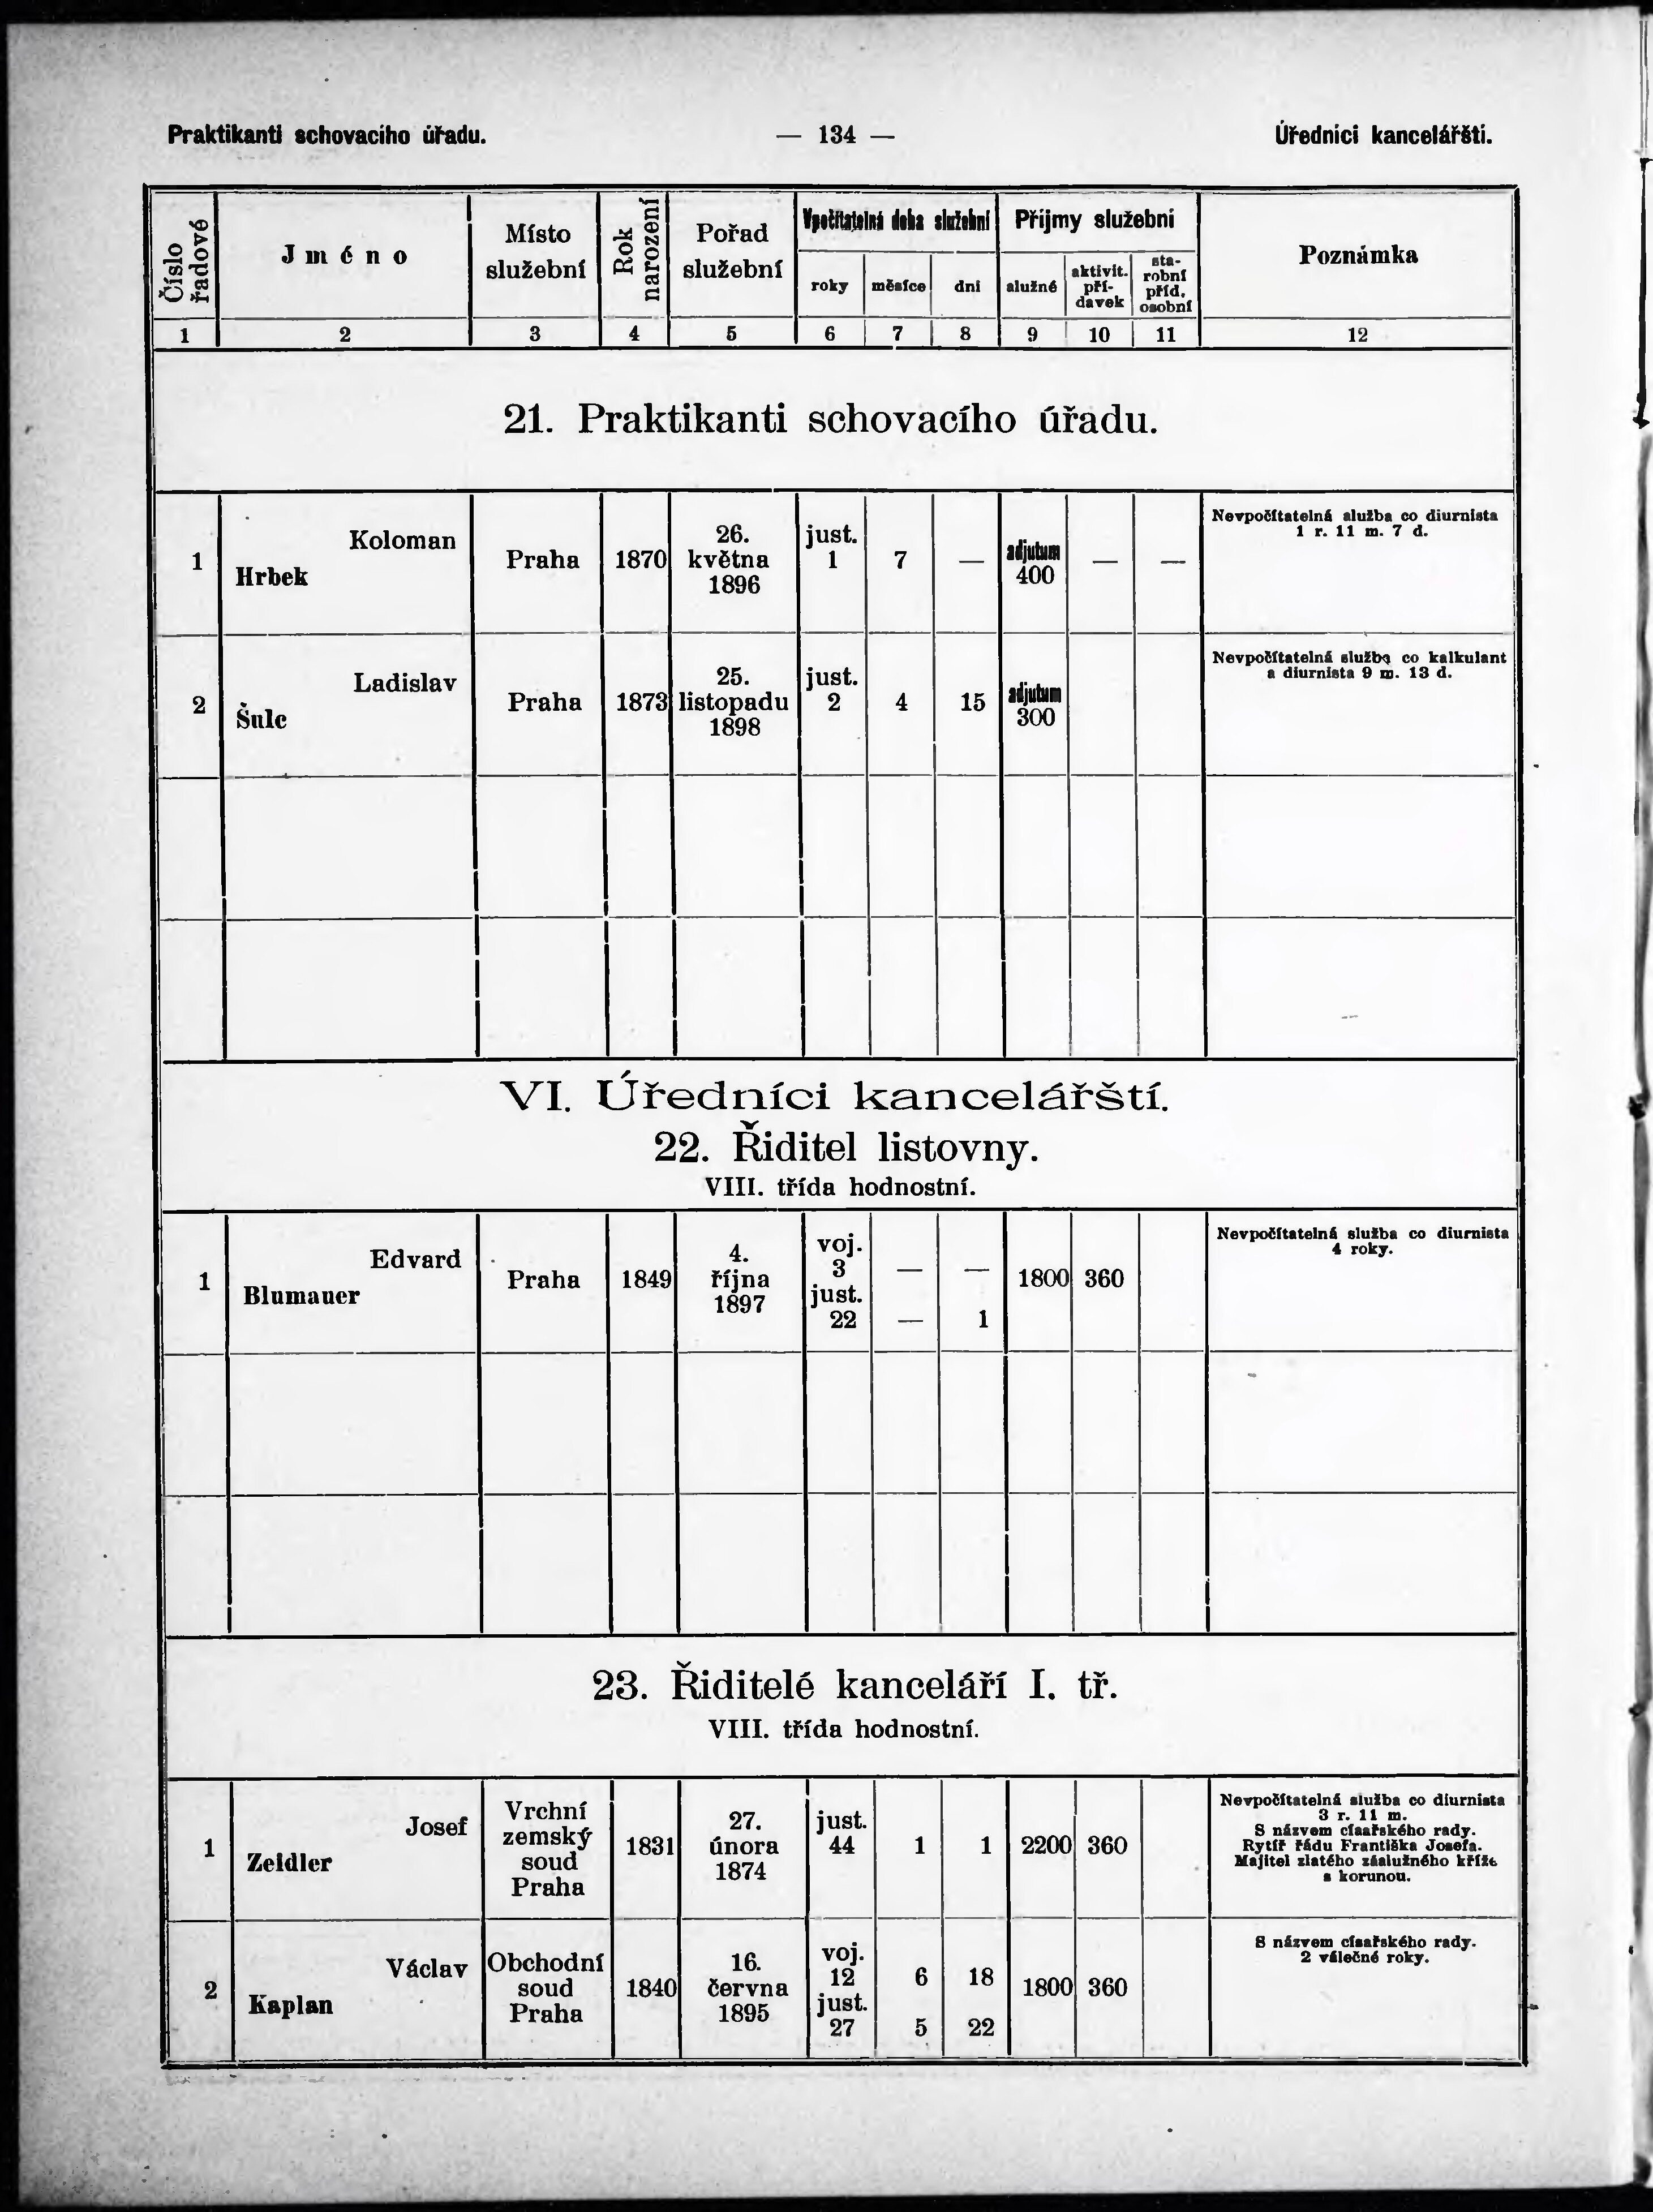 Praktikanti schovacího úřadu. — 134 — Úředníci kancelářští.
Číslo řadové
Jméno
Místo služební
Rok narození
Pořad služební
Vpočítatelná doba služební
Příjmy služební
Poznámka
roky měsíce dní služné aktivit. pří- davek sta- robní příd. osobní
1 2 3 4 5 6 7 8 9 10 11 12
21. Praktikanti schovacího úřadu.
1 Koloman Hrbek Praha 1870 26. května 1896 just. 1 7 — adjutum 400 — —
Nevpočítatelná služba co diurnista
1 r. 11 m. 7 d.
2 Ladislav Šulc Praha 1873 25. listopadu 1898 just. 2 4 15 adjutum 300
Nevpočítatelná služba co kalkulant
a diurnista 9 m. 13 d.
VI. Úředníci kancelářští.
22. Řiditel listovny.
VIII. třída hodnostní.
1 Edvard Blumauer Praha 1849 4. října 1897 voj. 3 — — just. 22 — 1 1800 360
Nevpočítatelná služba co diurnista
4 roky.
23. Řiditelé kanceláří I. tř.
VIII. třída hodnostní.
1 Josef Zeidler Vrchní zemský soud Praha 1831 27. února 1874 just. 44 1 1 2200 360
Nevpočítatelná služba co diurnista
3 r. 11 m.
S názvem císařského rady.
Rytíř řádu Františka Josefa.
Majitel zlatého záslužného kříže
s korunou.
2 Václav Kaplan Obchodní soud Praha 1840 16. června 1895 voj. 12 6 18 just. 27 5 22 1800 360
S názvem císařského rady.
2 válečné roky.